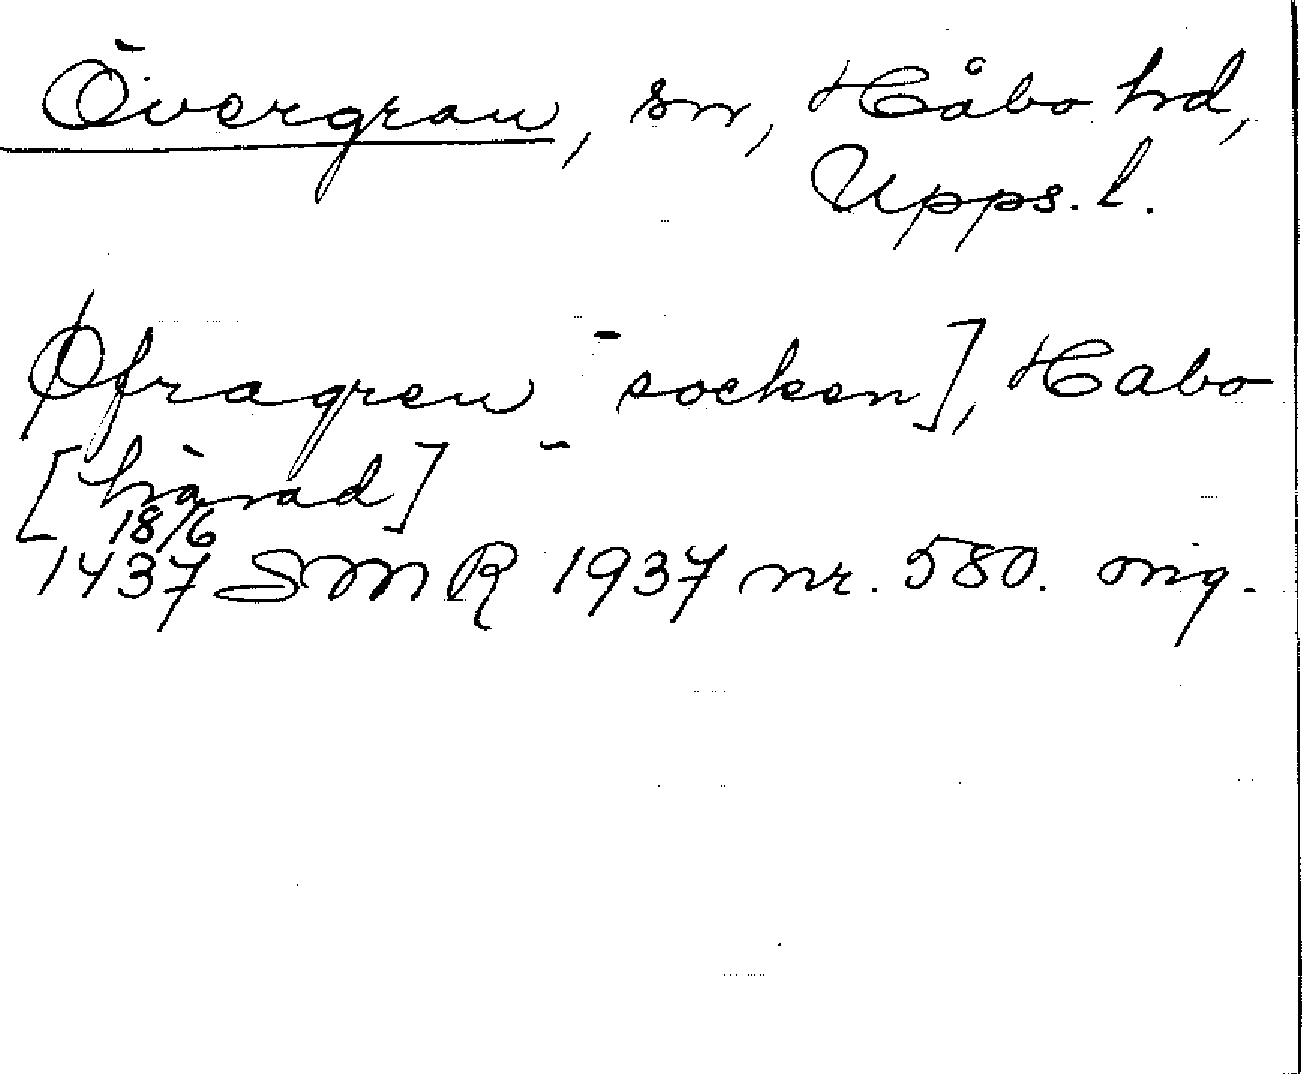 Övergran, sn, Håbo hd,
Upps. l.
Øfragren socken], Habo
[härad]
18/6
1437 SMR 1937 nr. 580. orig.